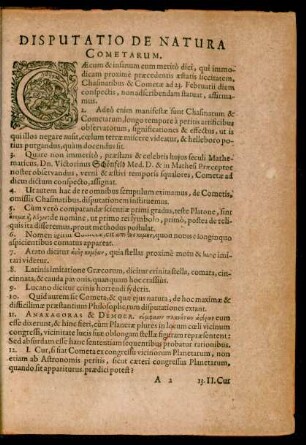 DISPUTATIO DE NATURA
COMETARUM.
CÆcum & insanum eum meritò dici, qui immo-
dicam proximè præcedentis æstatis siccitatem,
Chasmatibus & Cometæ ad 23. Februarii diem
conspectis, non adscribendam statuat, affirma-
mus.
2. Adeò enim manifestæ sunt Chasmatum &
Cometarum, longo tempore à peritis artificibus
observatorum, significationes & effectus, ut is
qui illos negare ausit, cœlum terræ miscere videatur, & helleboro po-
tius purgandus, quàm docendus sit.
3. Quare non immeritò, præstans & celebris hujus seculi Mathe-
maticus, Dn. Victorinus Schönfeld Med. D. & in Mathesi Præceptor
noster observandus, verni & æstivi temporis squalores, Cometæ ad
diem dictum conspecto, assignat.
4. Ut autem hac de re omnibus scrupulum eximamus, de Cometis,
omissis Chasmatibus, disputationem instituemus.
5. Cùm verò comparandæ scientiæ primi gradus, teste Platone, sint
de nomine, ut primo rei symbolo, primò, postea de reli-
quis ita disseremus, prout methodus postulat.
6. Nomen quod nobis è longinquo
aspicientibus comatus appareat.
7. Arato dicitur quia stellas proximè motu & luce imi-
tari videtur.
8. Latinis imitatione Græcorum, dicitur crinita stella, comata, cin-
cinnata, & cauda pavonis, quasi quum hoc crassius.
9. Lucano dicitur crinis horrendi sideris.
10. Quid autem sit Cometa, & quæ ejus natura, de hoc maximæ &
difficilimæ præstantium Philosophorum disputationes extant.
11. ANAXAGORAS & DEMOCR. eum
esse dixerunt, & hinc fieri, cùm Planetæ plures in locum cœli vicinum
congressi, vicinitate lucis suæ oblongum stellæ figuram repræsentent:
Sed absurdam esse hanc sententiam sequentibus probatur rationibus.
12. 1. Cur, si fiat Cometa ex congressu variorum Planetarum, non
etiam ab Astronomis petitis, sicut cæteri congressus Planetarum,
quando sit appariturus prædici potest?
A 2 13. II. Cur